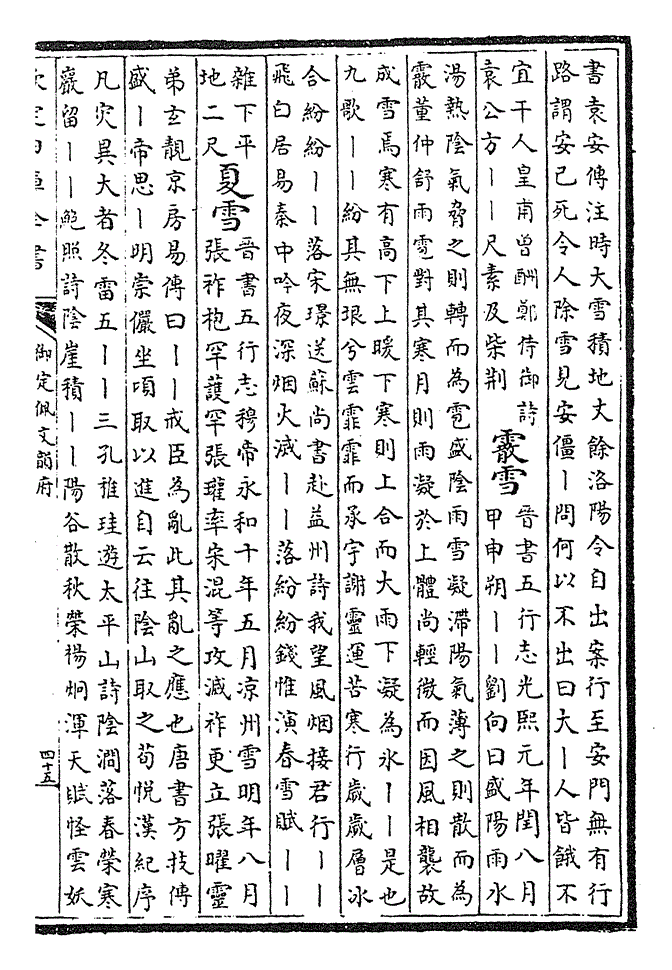 書袁安傳注時大雪積地丈餘洛陽令自出案行至安門無有行
路謂安已死令人除雪見安僵丨問何以不出曰大丨人皆餓不
宜干人皇甫曾酬鄭侍御詩
袁公方丨丨尺素及柴荆
霰雪
晉書五行志光熙元年閏八月
甲申朔丨丨劉向曰盛陽雨水
湯熱陰氣脅之則轉而為雹盛陰雨雪凝滯陽氣薄之則散而為
霰董仲舒雨雹對其寒月則雨凝於上體尚輕微而因風相襲故
成雪焉寒有高下上暖下寒則上合而大雨下凝為氷丨丨是也
九歌丨丨紛其無垠兮雲霏霏而承宇謝靈運苦寒行歲歲層冰
合紛紛丨丨落宋璟送蘇尚書赴益州詩我望風烟接君行丨丨
飛白居易秦中吟夜深烟火滅丨丨落紛紛錢惟演春雪賦丨丨
雜下平
地二尺
夏雪
晉書五行志穆帝永和十年五月凉州雪明年八月
張祚枹罕護罕張瓘率宋混等攻滅祚更立張曜靈
弟玄靚京房易傳曰丨丨戒臣為亂此其亂之應也唐書方技傳
盛丨帝思丨明崇儼坐頃取以進自云往陰山取之荀悅漢紀序
凡灾異大者冬雷五丨丨三孔稚珪遊太平山詩陰澗落春榮寒
巖留丨丨鮑照詩陰崖積丨丨陽谷散秋榮楊炯渾天賦怪雲妖
欽定四庫全書
御定佩文韻府
四十五